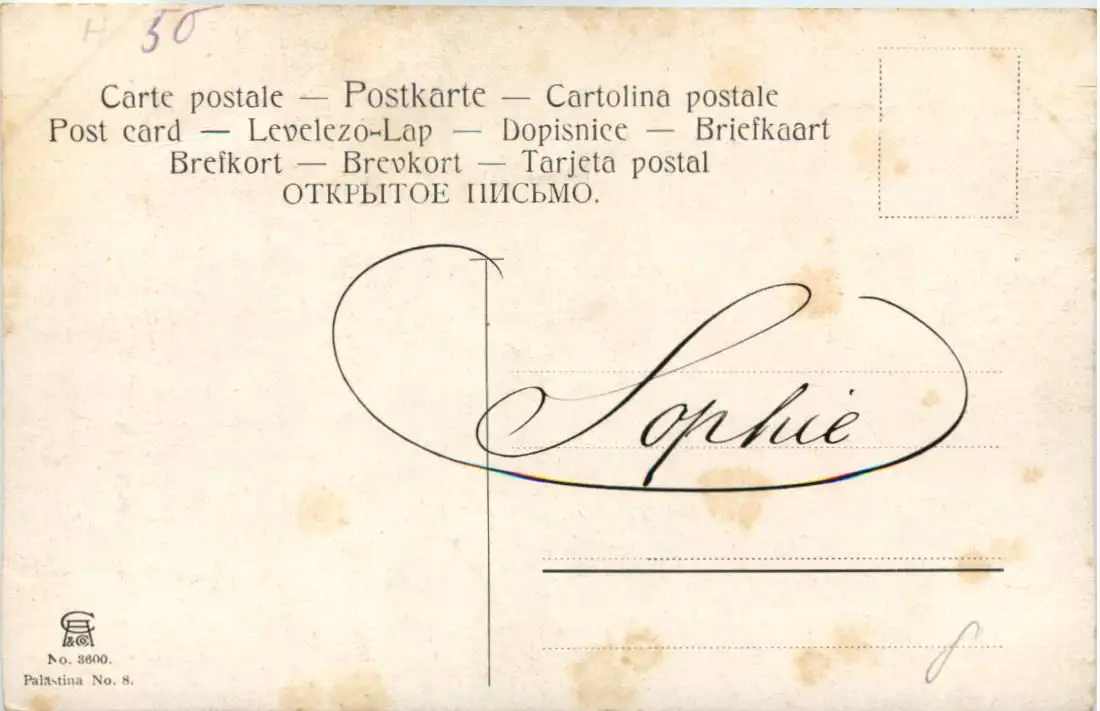 H 50
Carte postale — Postkarte — Cartolina postale
Post card — Levelezo-Lap — Dopisnice — Briefkaart
Brefkort — Brevkort — Tarjeta postal
ОТКРЫТОЕ ПИСЬМО.
Sophie
& Co
No. 3600.
Palästina No. 8.
8